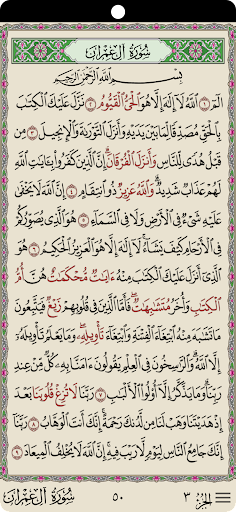 سُورَةُ آلِ عِمْرَانَ
بِسْمِ ٱللَّهِ ٱلرَّحْمَٰنِ ٱلرَّحِيمِ
الٓمٓ ١ ٱللَّهُ لَآ إِلَٰهَ إِلَّا هُوَ ٱلْحَىُّ ٱلْقَيُّومُ ٢ نَزَّلَ عَلَيْكَ ٱلْكِتَٰبَ
بِٱلْحَقِّ مُصَدِّقًا لِّمَا بَيْنَ يَدَيْهِ وَأَنزَلَ ٱلتَّوْرَىٰةَ وَٱلْإِنجِيلَ ٣ مِن
قَبْلُ هُدًى لِّلنَّاسِ وَأَنزَلَ ٱلْفُرْقَانَ إِنَّ ٱلَّذِينَ كَفَرُوا۟ بِـَٔايَٰتِ ٱللَّهِ
لَهُمْ عَذَابٌ شَدِيدٌ وَٱللَّهُ عَزِيزٌ ذُو ٱنتِقَامٍ ٤ إِنَّ ٱللَّهَ لَا يَخْفَىٰ
عَلَيْهِ شَىْءٌ فِى ٱلْأَرْضِ وَلَا فِى ٱلسَّمَآءِ ٥ هُوَ ٱلَّذِى يُصَوِّرُكُمْ
فِى ٱلْأَرْحَامِ كَيْفَ يَشَآءُ لَآ إِلَٰهَ إِلَّا هُوَ ٱلْعَزِيزُ ٱلْحَكِيمُ ٦ هُوَ
ٱلَّذِىٓ أَنزَلَ عَلَيْكَ ٱلْكِتَٰبَ مِنْهُ ءَايَٰتٌ مُّحْكَمَٰتٌ هُنَّ أُمُّ
ٱلْكِتَٰبِ وَأُخَرُ مُتَشَٰبِهَٰتٌ فَأَمَّا ٱلَّذِينَ فِى قُلُوبِهِمْ زَيْغٌ فَيَتَّبِعُونَ
مَا تَشَٰبَهَ مِنْهُ ٱبْتِغَآءَ ٱلْفِتْنَةِ وَٱبْتِغَآءَ تَأْوِيلِهِۦ وَمَا يَعْلَمُ تَأْوِيلَهُۥٓ
إِلَّا ٱللَّهُ وَٱلرَّٰسِخُونَ فِى ٱلْعِلْمِ يَقُولُونَ ءَامَنَّا بِهِۦ كُلٌّ مِّنْ عِندِ
رَبِّنَا وَمَا يَذَّكَّرُ إِلَّآ أُو۟لُوا۟ ٱلْأَلْبَٰبِ ٧ رَبَّنَا لَا تُزِغْ قُلُوبَنَا بَعْدَ
إِذْ هَدَيْتَنَا وَهَبْ لَنَا مِن لَّدُنكَ رَحْمَةً إِنَّكَ أَنتَ ٱلْوَهَّابُ ٨ رَبَّنَآ
إِنَّكَ جَامِعُ ٱلنَّاسِ لِيَوْمٍ لَّا رَيْبَ فِيهِ إِنَّ ٱللَّهَ لَا يُخْلِفُ ٱلْمِيعَادَ ٩
الجزء ٣ ٥٠ سُورَةُ آلِ عِمْرَانَ